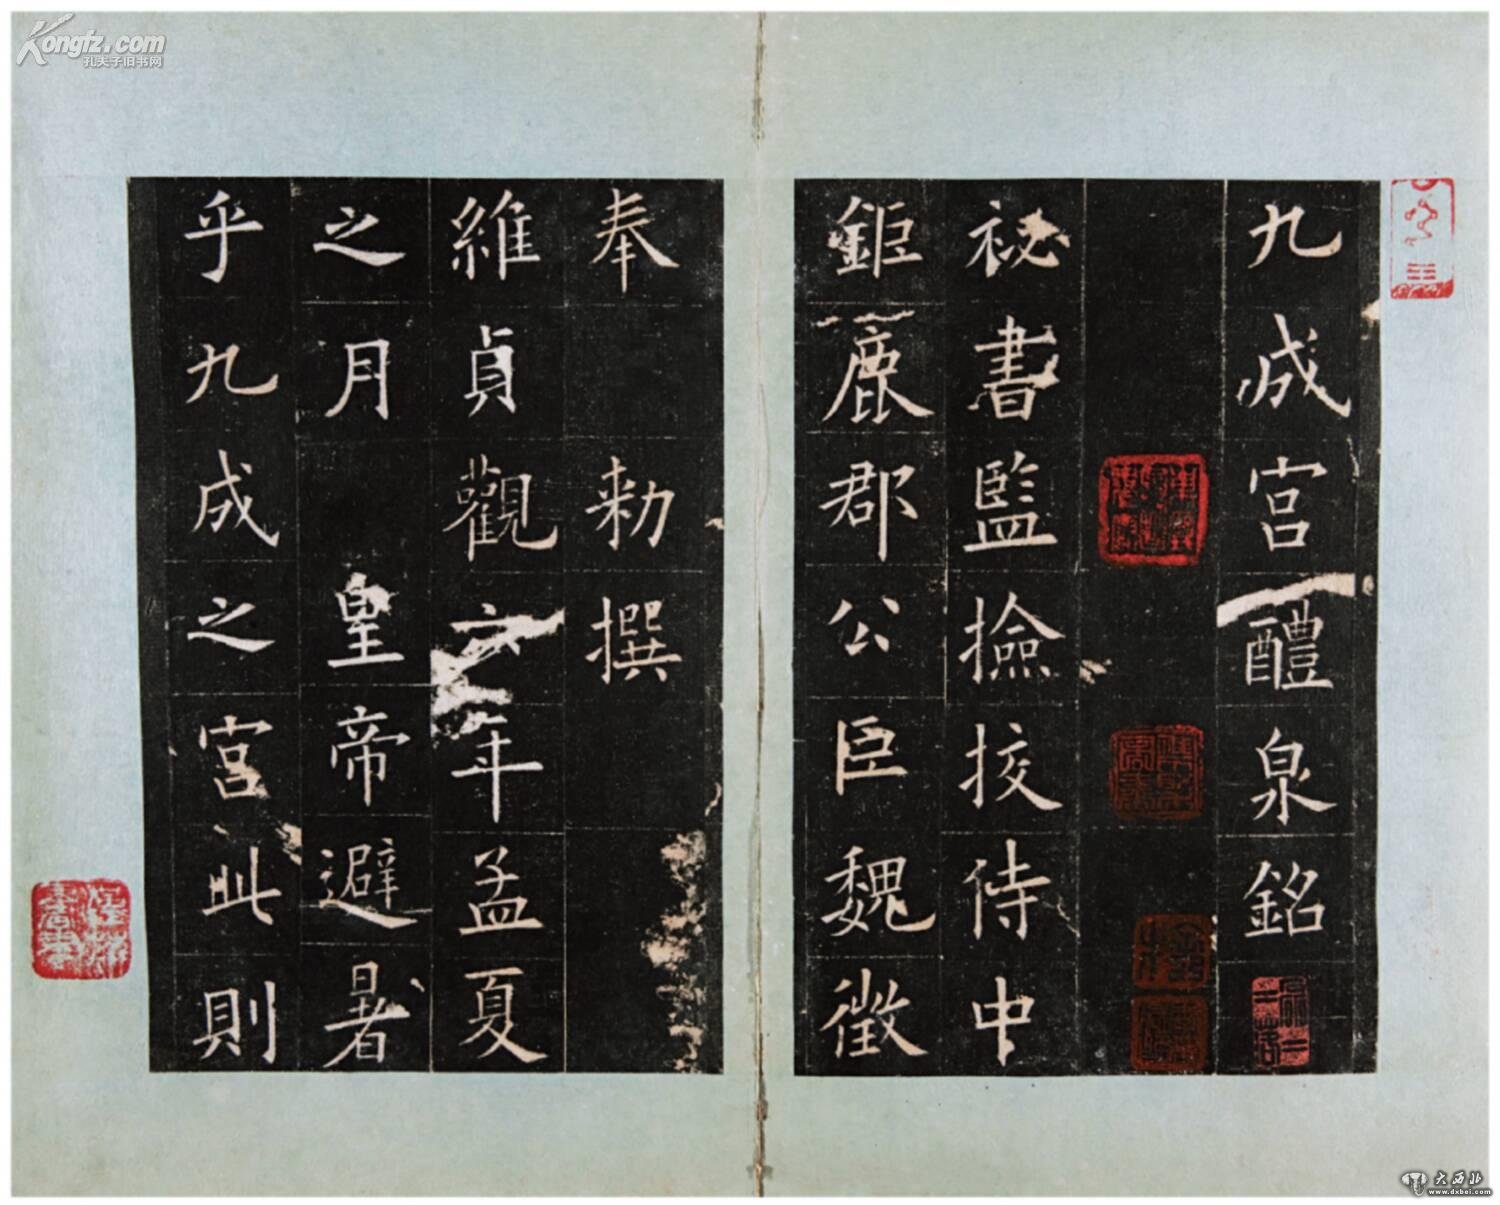 九成宮醴泉銘
祕書監撿挍侍中
鉅鹿郡公臣魏徵
奉 勑撰
維貞觀六年孟夏
之月 皇帝避暑
乎九成之宮此則
Kongfz.com
孔夫子旧书网
大西北
www.dxbei.com